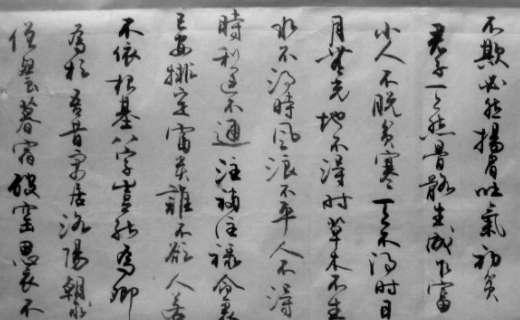 不欺必然揚眉吐氣初貧
君子天然骨骼生成乍富
小人不脫貧寒天不得时日
月無光地不得时草木不生
水不得時風浪不平人不得
時利運不通注福注祿命裏
已安排定富貴誰不欲人若
不依根基八字豈能為卿
為相吾昔寓居洛陽朝求
僧餐暮宿破窑思衣不